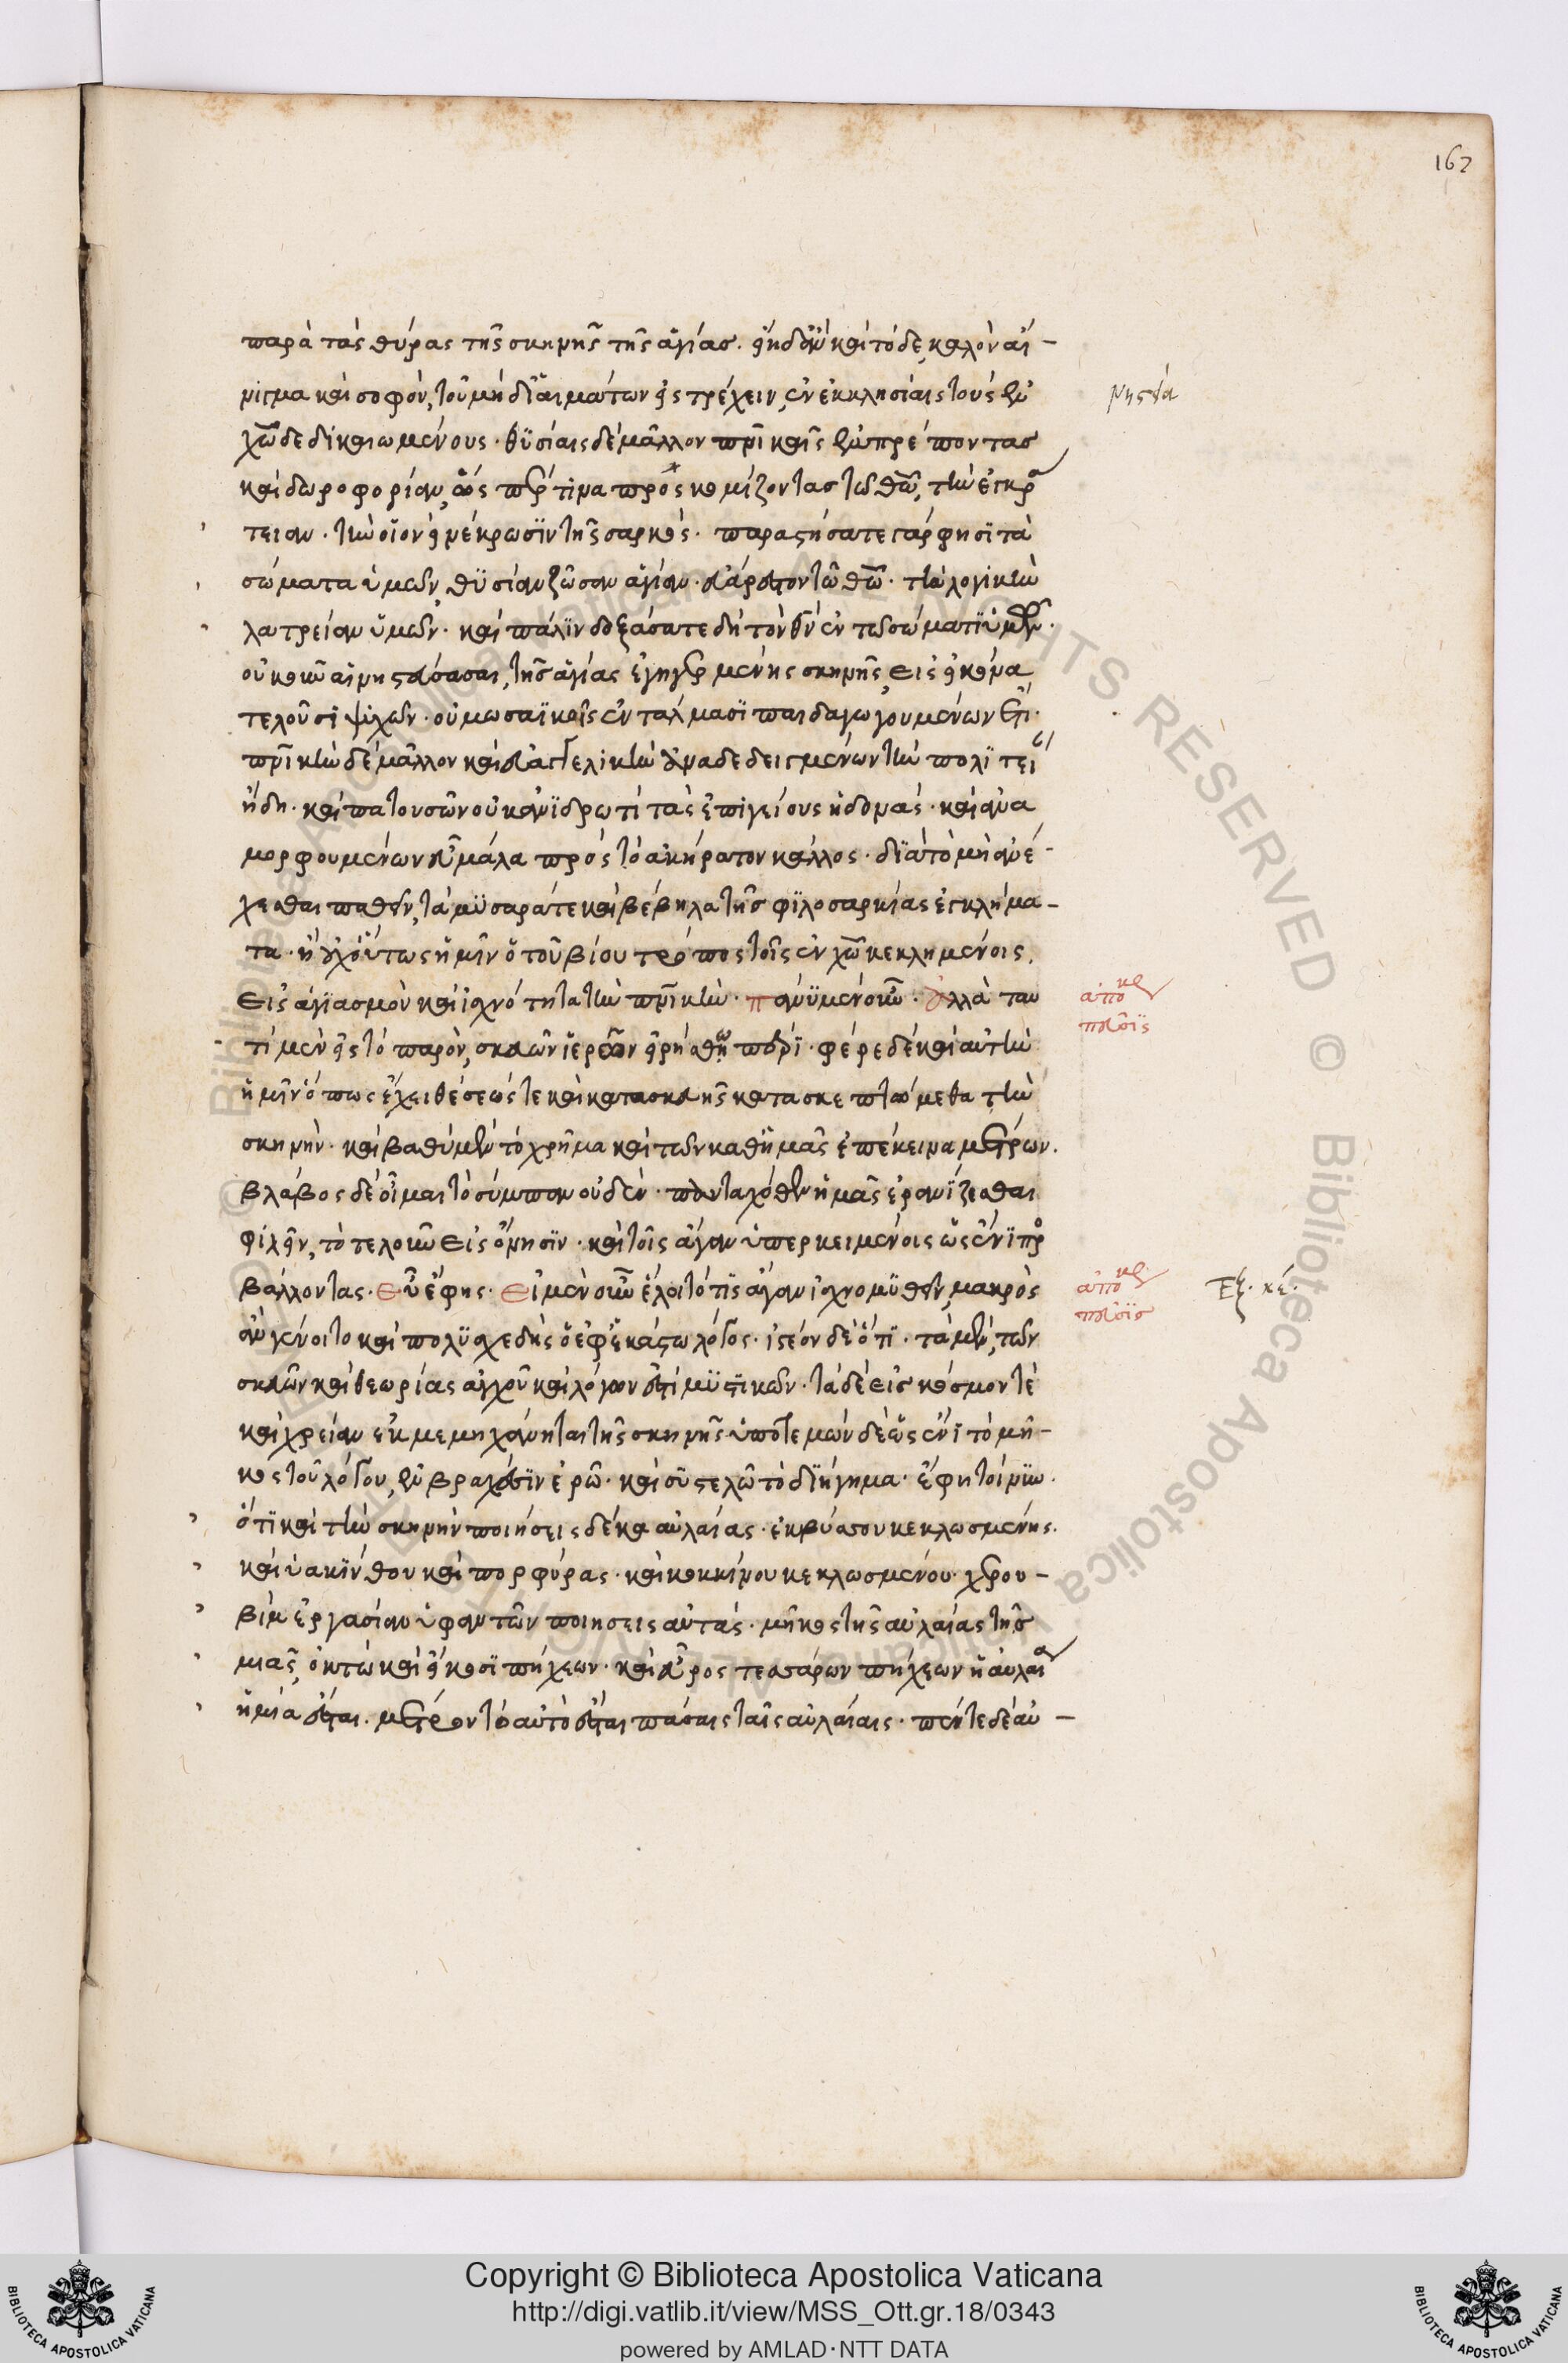 162
παρὰ τὰς θύρας τῆς σκηνῆς τῆς ἁγίας. εἴη δ' ἂν καὶ τόδε, καλὸν αἴ-
νιγμα καὶ σοφὸν, τοῦ μὴ δι' αἱμάτων εἰστρέχειν, ἐν ἐκκλησίαις τοὺς ἐν
νηστεία
χῶ δεδικαιωμένους. θυσίαις δὲ μᾶλλον πνικαῖς ἐμπρέποντας
καὶ δωροφορίαν, ὡς προτίμα πρὸς κομίζοντας τῶ θῶ, τὴν ἐγκρά
τειαν. τὴν οἷον εἰ νέκρωσιν τῆς σαρκός. παραστήσατε γάρ φησι τὰ
σώματα ὑμῶν, θυσίαν ζῶσαν ἁγίαν. εὐάρεστον τῶ θῶ. τὴν λογικὴν
λατρείαν ὑμῶν. καὶ πάλιν δοξάσατε δὴ τὸν θν ἐν τῶ σώματι ὑμῶν.
οὐκοῦν αἱ νηστεύσασαι, τῆς ἁγίας ἐγηγερμένης σκηνῆς, εἰς εἰκόνα
τελοῦσι ψυχῶν. οὐ μωσαϊκοῖς ἐντάλμασι παιδαγωγουμένων ἔτι.
πνικὴν δὲ μᾶλλον καὶ εὐαγγελικὴν ἀναδεδειγμένων τὴν πολιτεί
ήδη. καὶ πατουσῶν οὐκ ἀνιδρωτὶ τὰς ἐπιγείους ἡδονάς. καὶ ἀνα
μορφουμένων εὖ μάλα πρὸς τὸ ἀκήρατον κάλλος. διὰ τὸ μὴ ἀνέ-
χεσθαι παθεῖν, τὰ μυσαρά τε καὶ βέβηλα τῆς φιλοσαρκίας ἐγκλήμα-
τα. ἢ οὐχ οὕτως ἡμῖν ὁ τοῦ βίου τρόπος τοῖς ἐν χῶ κεκλημένοις,
εἰς ἁγιασμὸν καὶ ἰσχνότητα τὴν πνικήν. πάνυ μὲν οὖν. ἀλλὰ ταυ
ἀπόκρ
παλλάδιος
τὶ μὲν εἰς τὸ παρὸν, σκευῶν ἱερῶν εἰρήσθω πέρι. φέρε δὲ καὶ αὐτὴν
ἡμῖν ὅπως ἔχει θέσεώς τε καὶ κατασκευῆς κατασκεπτώμεθα τὴν
σκηνήν. καὶ βαθὺ μὲν τὸ χρῆμα καὶ τῶν καθ' ἡμᾶς ἐπέκεινα μέτρων.
βλάβος δὲ οἶμαι τὸ σύμπαν οὐδέν. πανταχόθεν ἡμᾶς ἐρανίζεσθαι
φιλεῖν, τὸ τελοῦν εἰς ὄνησιν. καὶ τοῖς ἄγαν ὑπερκειμένοις ὡς ἔνι προς
βάλλοντας. εὖ ἔφης. εἰ μὲν οὖν ἕλοιτό τις ἄγαν ἰσχνομυθεῖν, μακρὸς
ἀπόκρ
Ἐξ. κέ.
ἂν γένοιτο καὶ πολυσχεδὴς ὁ ἐφ' ἑκάστω λόγος. ἰστέον δὲ ὅτι. τὰ μὲν, τῶν
σκευῶν καὶ θεωρίας ἀγχοῦ καὶ λόγων ἐστὶ μυστικῶν. τὰ δὲ εἰς κόσμον τὲ
καὶ χρείαν ἐκμεμηχάνηται τῆς σκηνῆς ὑποτεμὼν δὲ ὡς ἔνι τὸ μῆ-
κος τοῦ λόγου, ἐν βραχέσιν ἐρῶ. καὶ συστελῶ τὸ διήγημα. ἔφη τοίνυν.
ὅτι καὶ τὴν σκηνὴν ποιήσεις δέκα αὐλαίας. ἐκ βύσσου κεκλωσμένης.
καὶ ὑακίνθου καὶ πορφύρας. καὶ κοκκίνου κεκλωσμένου. χερου-
βὶμ ἐργασίαν ὑφαντῶν ποιήσεις αὐτάς. μῆκος τῆς αὐλαίας τῆς
μιᾶς, ὀκτὼ καὶ εἴκοσι πήχεων. καὶ εὖρος τεσσάρων πήχεων ἡ αὐλαία
ἡ μία ἔσται. μέτρον τὸ αὐτὸ ἔσται πάσαις ταῖς αὐλαίαις. πέντε δὲ αὐ-
Copyright © Biblioteca Apostolica Vaticana
http://digi.vatlib.it/view/MSS_Ott.gr.18/0343
powered by AMLAD·NTT DATA
BIBLIOTECA APOSTOLICA VATICANA
BIBLIOTECA APOSTOLICA VATICANA